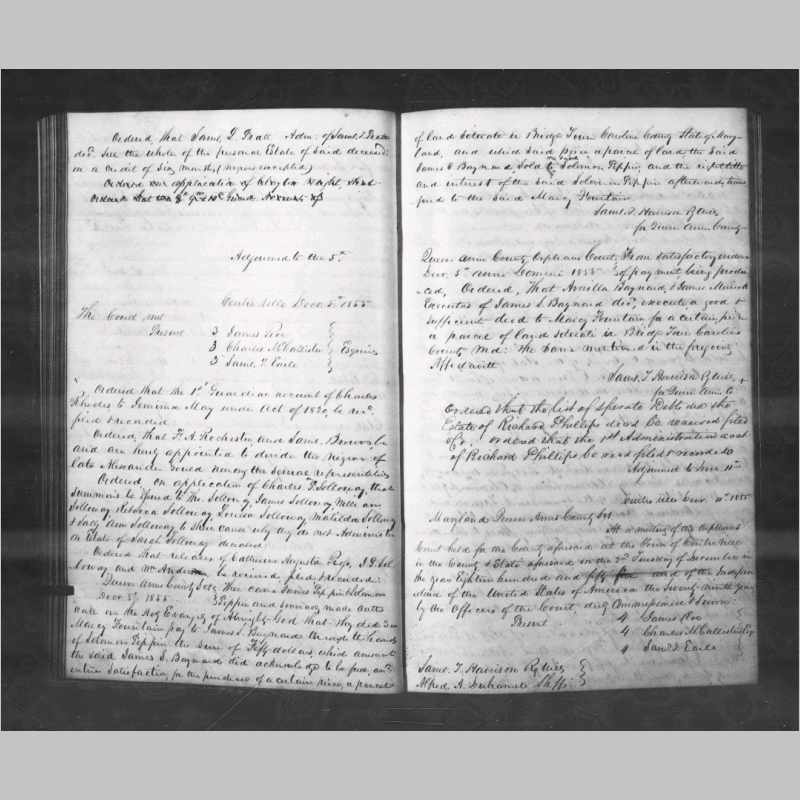 Ordered, that Saml. T. Pratt Admr. of Saml. T. Pratt
decd. Sell the whole of the personal Estate of Said deceased
on a credit of Six months (negroes excepted)
Ordered on application of
Ordered that
Adjourned to the 5th
Centreville Decr. 5th 1855
The Court met
Present 3 James Roe
3 Charles McCallister Esquires
3 Saml. T. Earle
Ordered that the 1st Guardian account of Charles
Rhodes to Jemima May under Act of 1820, be recd.
filed & recorded.
Ordered, that F. A. Rochester and Saml. Burrows be
and are hereby appointed to divide the Negroes of
late Alexander among the several representatives
Ordered on application of Charles P. Solloway, that
Summons be issued to Solloway, James Solloway, William
Solloway, Rebecca Solloway, Louisa Solloway, Matilda Solloway
& Sally Ann Solloway to Shew cause why they do not Administer
on Estate of Sarah Solloway deceased
Ordered that releases of Catharine Augusta Paige, J. P. Sol
loway and Wm. be received filed & recorded.
Queen Anns County Sct; Then came James Peppin & Solomon
Decr. 5th 1855. Peppin and severally made oath
on the Holy Evangely of Almighty God that they did see
Marcy Fountain pay to James S. Baynard through the hands
of Solomon Peppin the Sum of Fifty dollars, which amount
the said James S. Baynard did acknowledge to be full and
entire Satisfaction for the purchase of a certain piece, a parcel
of land situate in Bridge Town Caroline County State of Mary
land, and which said piece a parcel of land the said
James S. Baynard Sold to one said Solomon Peppin, and the
and interest of the said Solomon Peppin afterwards trans
fered to the Said Marcy Fountain
Saml. T. Harrison R. Wills
for Queen Anns County
Queen Anns County Orphans Court, From satisfactory evidence
Decr. 5th Anno Domini 1855 of payment being produ
ced, Ordered, That Araella Baynard, & James Merrick
Executors of James S. Baynard decd, execute a good &
sufficient deed to Marcy Fountain for a certain piece
a parcel of land situate in Bridge Town Caroline
County Md: the same mentioned in the foregoing
Affidavitt
Saml. T. Harrison R. Wills
for Queen Anns Co
Ordered that the list of Sperate Debts due the
Estate of Richard Phillips decd be received filed
&c, ordered that the 1st Administration acct
of Richard Phillips be recd filed & recorded
Adjourned to Decr. 11th
Centreville Decr. 11th 1855
Maryland Queen Anns County Sct
At a meeting of the Orphans
Court held for the County aforesaid at the Town of Centreville
in the County & State aforesaid on the 2nd Tuesday of December in
the year Eighteen hundred and fifty five and of the Indepen
dence of the United States of America the Seventy ninth year
by the Officers of the Court, duly Commissioned & Sworn
Present 4 James Roe
4 Charles McCallister Esqrs
4 Saml. T. Earle
Saml. T. Harrison Reg Wills
Alfred A. Sheff.